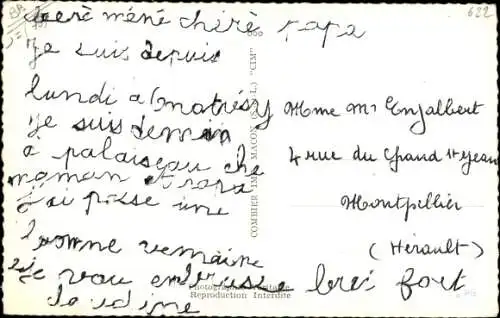 chère mémé chère papa
je suis depuis
lundi a
je suis demain
a palaiseau che
maman et papa
j'ai passe une
bonne semaine
je vou embrusse brei fort
622
Mme Mr Enjalbert
4 rue du Grand St Jean
Montpellier
(Hérault)
COMBIER IMP. MACON (S.-&-L.) "CIM"
Photographie Véritable
Reproduction Interdite